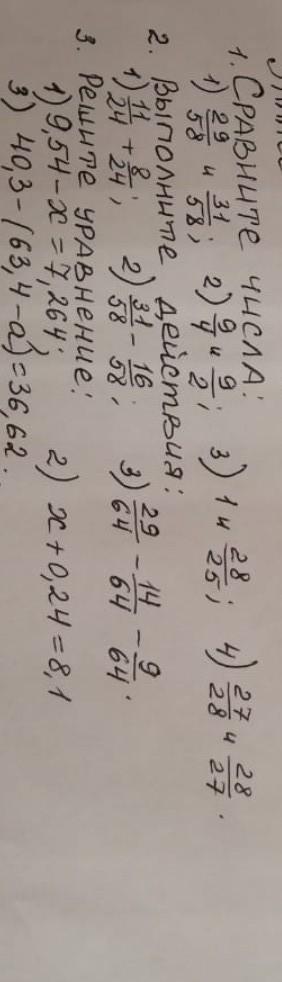 1. Сравните числа:
1) 29/58 и 31/58; 2) 9/4 и 9/2; 3) 1 и 28/25; 4) 27/28 и 28/27.
2. Выполните действия:
1) 11/24 + 8/24; 2) 31/58 - 16/58; 3) 29/64 - 14/64 - 9/64.
3. Решите уравнение:
1) 9,54 - x = 7,264; 2) x + 0,24 = 8,1
3) 40,3 - (63,4 - a) = 36,62.